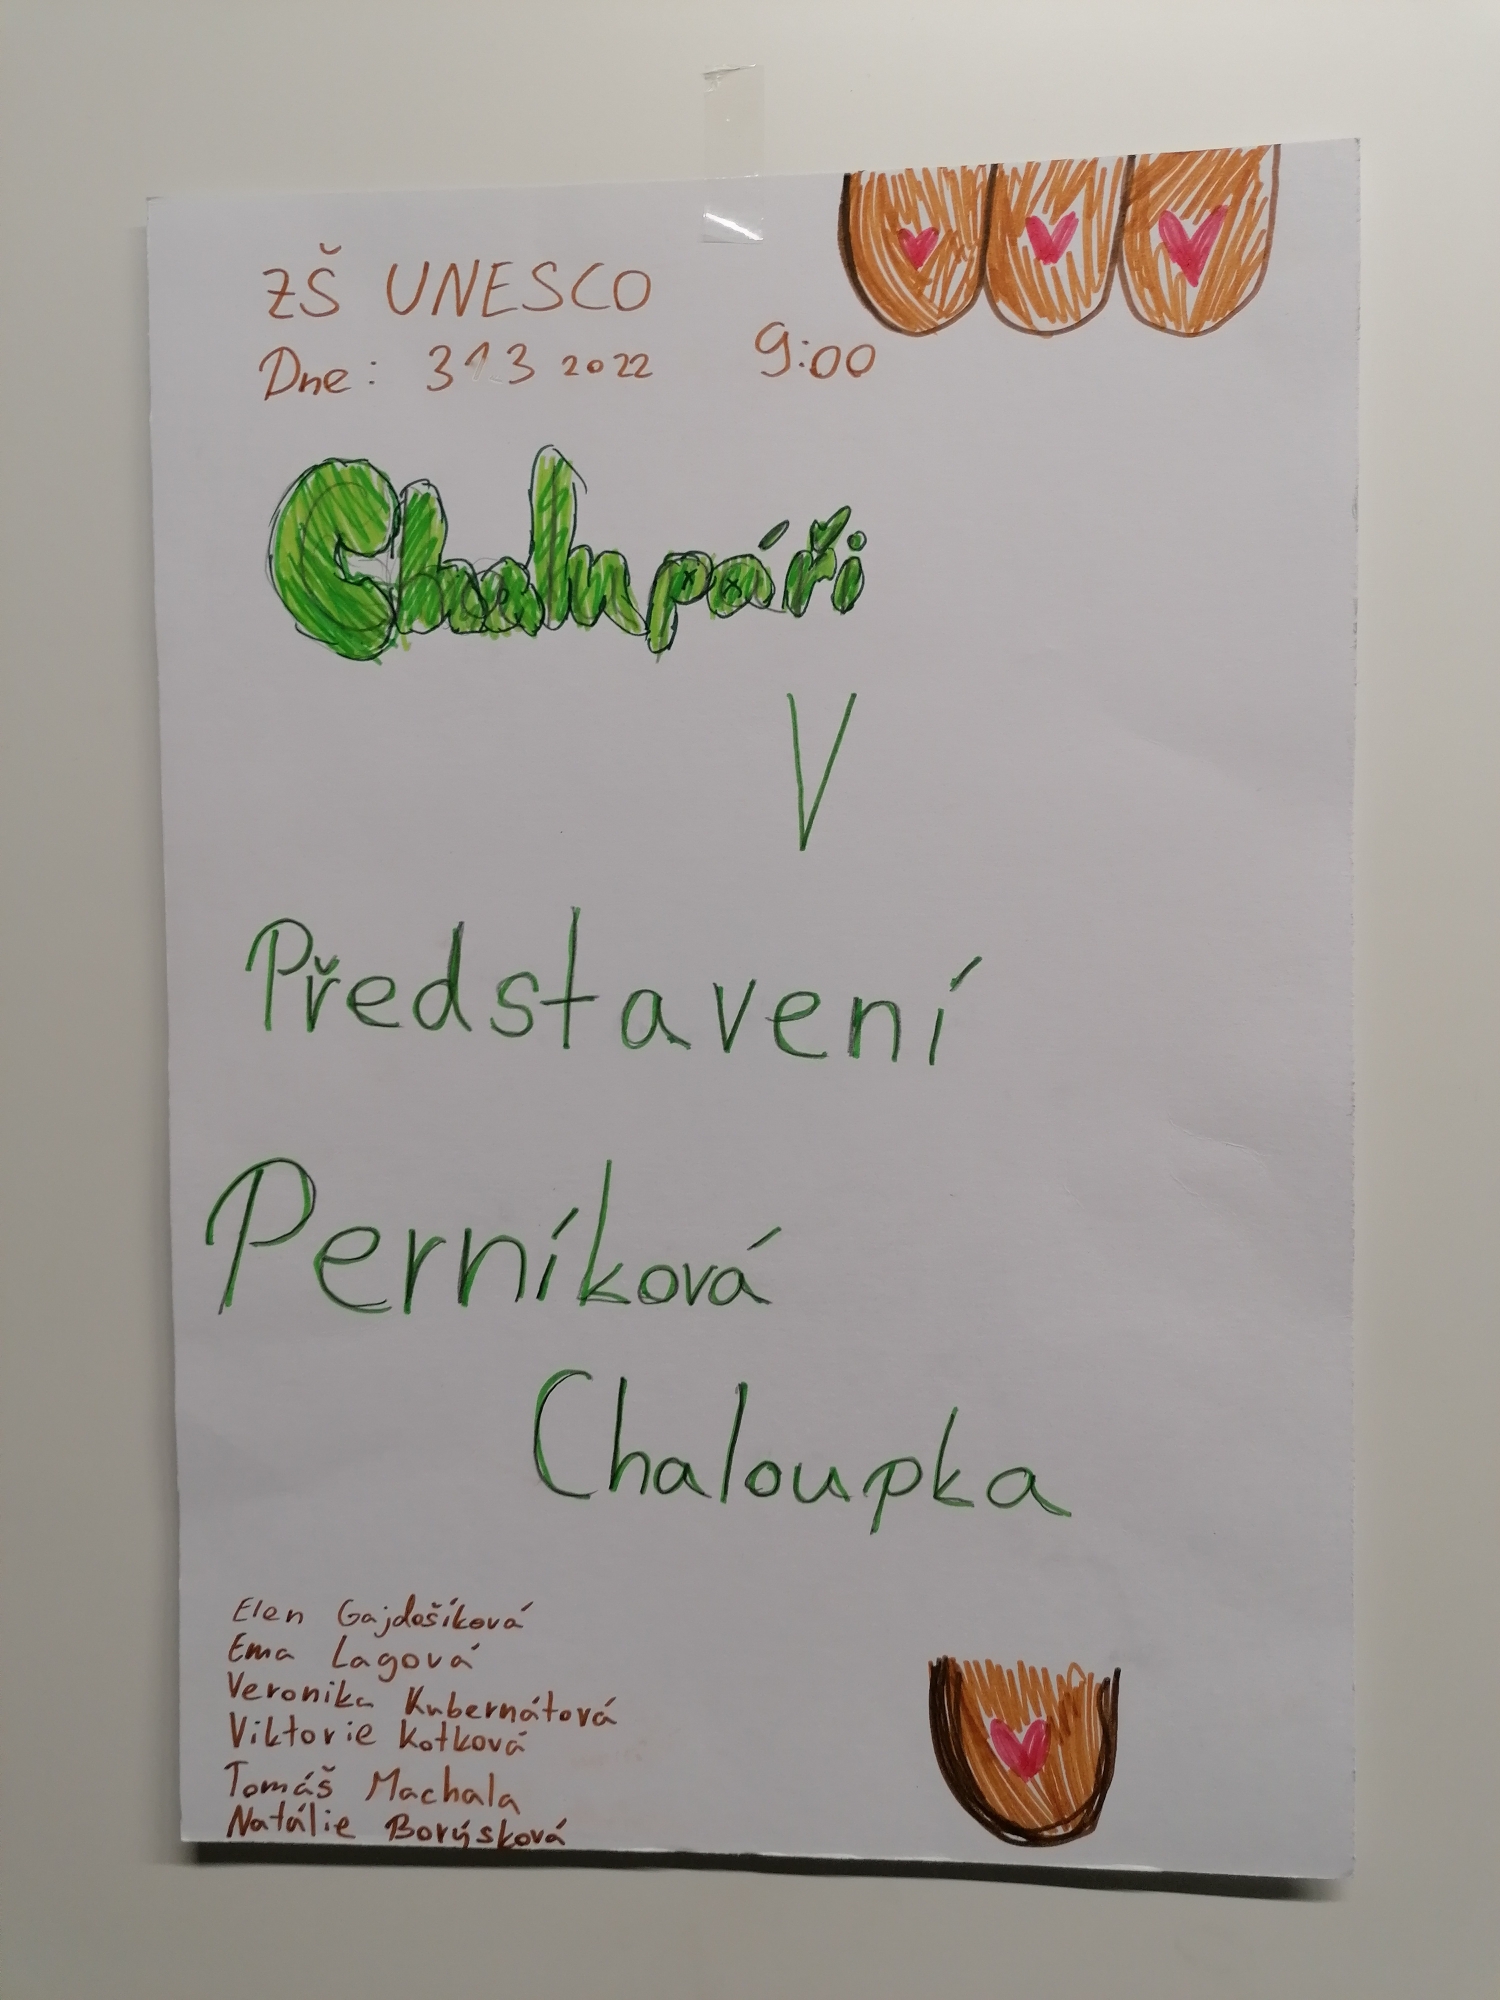 ZŠ UNESCO
Dne: 31.3 2022 9:00
Chalupáři
V
Představení
Perníková
Chaloupka
Elen Gajdošíková
Ema Lagová
Veronika Kubernátová
Viktorie Kotková
Tomáš Machala
Natálie Borýsková